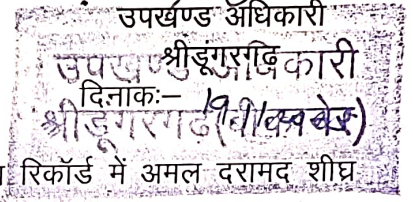 उपखण्ड अधिकारी
श्रीडूंगरगढ़
उपखण्ड अधिकारी
दिनांक:–
श्रीडूंगरगढ़ (बीकानेर)
रिकॉर्ड में अमल दरामद शीघ्र